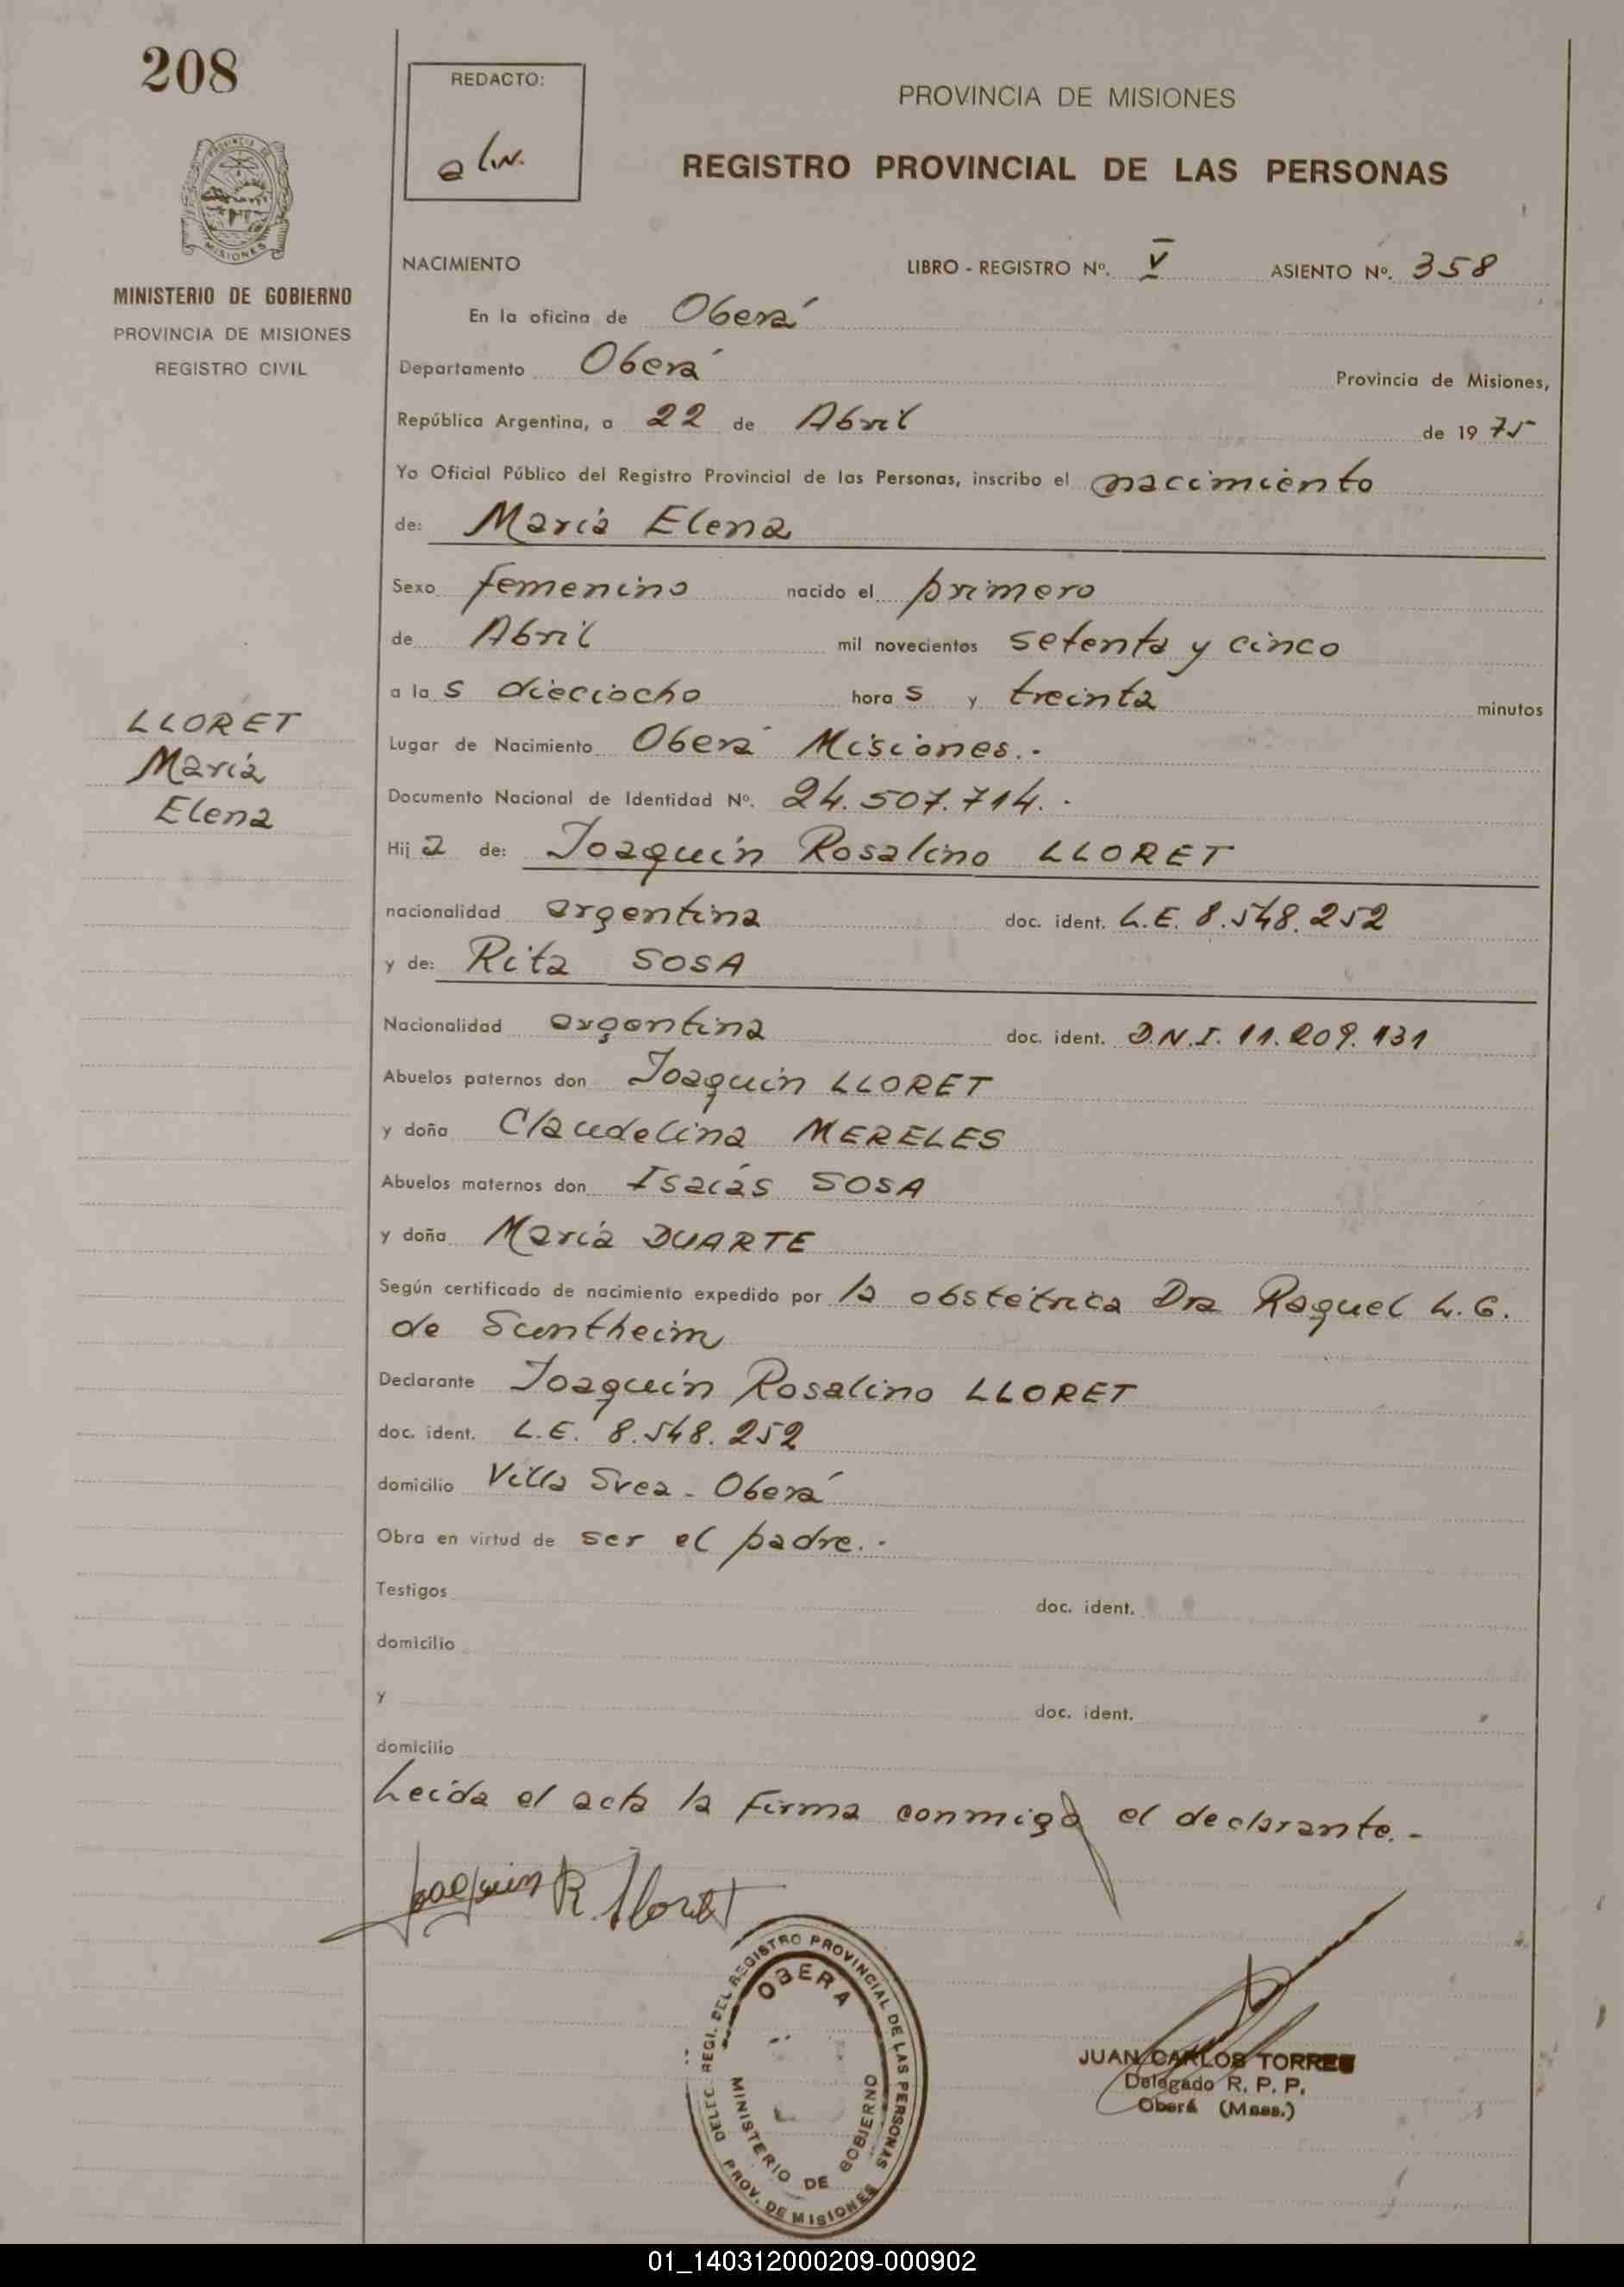 208
REDACTO:
a lw.
PROVINCIA DE MISIONES
REGISTRO PROVINCIAL DE LAS PERSONAS
PROVINCIA DE MISIONES
MINISTERIO DE GOBIERNO
PROVINCIA DE MISIONES
REGISTRO CIVIL
LLORET
María
Elena
NACIMIENTO LIBRO - REGISTRO Nº. V ASIENTO Nº. 358
En la oficina de Oberá
Departamento Oberá Provincia de Misiones,
República Argentina, a 22 de Abril de 1975
Yo Oficial Público del Registro Provincial de las Personas, inscribo el nacimiento
de: María Elena
Sexo femenino nacido el primero
de Abril mil novecientos setenta y cinco
a las dieciocho horas y treinta minutos
Lugar de Nacimiento Oberá Misiones.-
Documento Nacional de Identidad Nº. 24.507.714.-
Hija de: Joaquín Rosalino LLORET
nacionalidad argentina doc. ident. L.E. 8.548.252
y de: Rita SOSA
Nacionalidad argentina doc. ident. D.N.I. 11.209.131
Abuelos paternos don Joaquín LLORET
y doña Claudelina MERELES
Abuelos maternos don Isaías SOSA
y doña María DUARTE
Según certificado de nacimiento expedido por la obstétrica Dra Raquel L.G.
de Suntheim
Declarante Joaquín Rosalino LLORET
doc. ident. L.E. 8.548.252
domicilio Villa Svea - Oberá
Obra en virtud de ser el padre.-
Testigos doc. ident.
domicilio
y doc. ident.
domicilio
Leída el acta la firma conmigo el declarante.-
Joaquin R. Lloret
DELEG. REGI. DEL REGISTRO PROVINCIAL DE LAS PERSONAS
OBERA
MINISTERIO DE GOBIERNO
PROV. DE MISIONES
JUAN CARLOS TORRES
Delegado R. P. P.
Oberá (Mnes.)
01_140312000209-000902